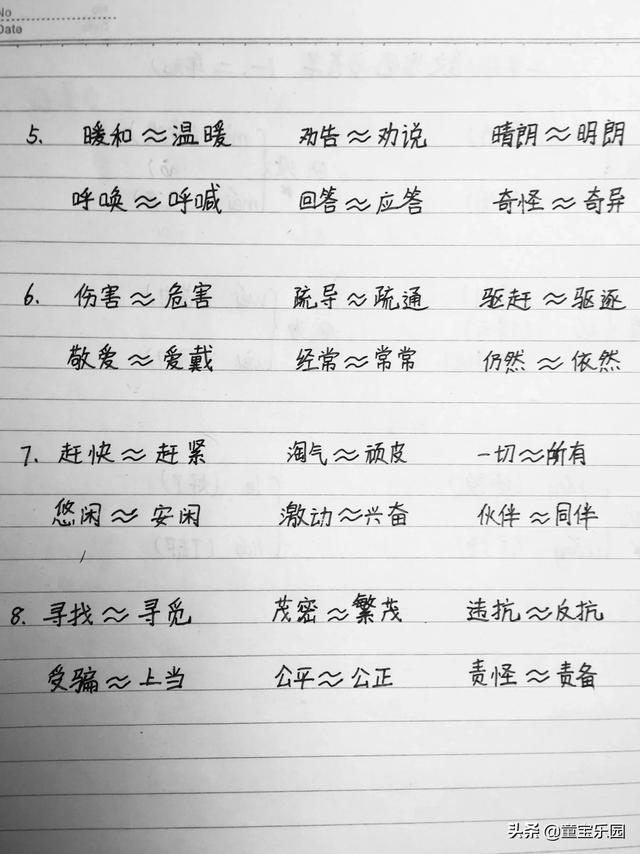 No
Date
5. 暖和≈温暖 劝告≈劝说 晴朗≈明朗
呼唤≈呼喊 回答≈应答 奇怪≈奇异
6. 伤害≈危害 疏导≈疏通 驱赶≈驱逐
敬爱≈爱戴 经常≈常常 仍然≈依然
7. 赶快≈赶紧 淘气≈顽皮 一切≈所有
悠闲≈安闲 激动≈兴奋 伙伴≈同伴
8. 寻找≈寻觅 茂密≈繁茂 违抗≈反抗
受骗≈上当 公平≈公正 责怪≈责备
头条 @童宝乐园